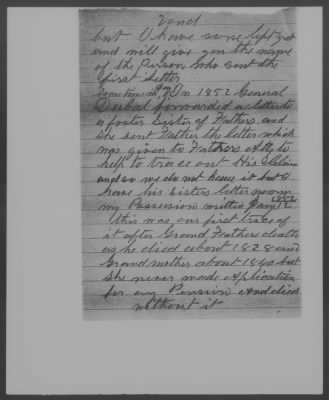 2end
but I have some left yet
and will give you the name
of the Person who sent the
first letter
Sometime in 1852 General
forwarded a letter to
a foster Sister of Fathers, and
she sent Father the letter which
was given to Fathers Atty to
help to trace out His Claim
and so we do not have it but I
have his Sisters letter now in
my Possession written Jany 12 1852
this was our first trace of
it after Grand Fathers death
as he died about 1828 and
Grandmother about 1840 but
she never made Application
for any Pension and died
without it